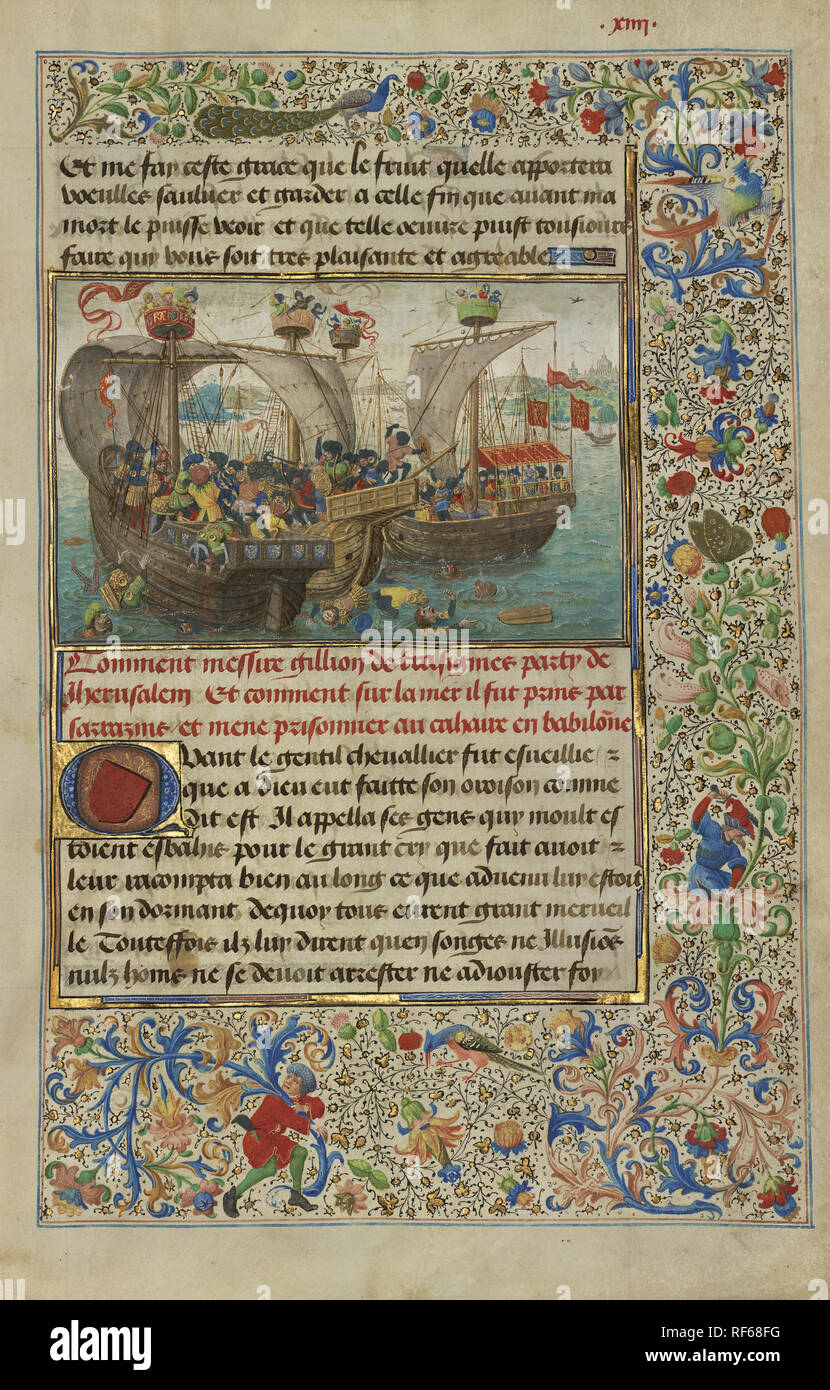 · xiiij ·
Et me fay ceste grace que le fruit quelle apportera
voeulles sauluer et garder a celle fin que auant ma
mort le puisse veoir et que telle oeuure puist tousiours
faire quy vous soit tres plaisante et agreable
Comment messire gillion de trasignies party de
Jherusalem Et comment sur la mer il fut prins par
sarrazins et mene prisonnier au cahaire en babilōne
Quant le gentil cheuallier fut esueillie ⁊
que a dieu eut faitte son oroison comme
dit est Il appella ses gens quy moult es
toient esbahis pour le grant cry que fait auoit ⁊
leur racompta bien au long ce que aduenu luy estoit
en son dormant Dequoy tous eurent grant merueil
le Touteffois ilz luy dirent quen songes ne Illusiōs
nulz homs ne se deuoit arrester ne adiouster foy
alamy
Image ID: RF68FG
www.alamy.com